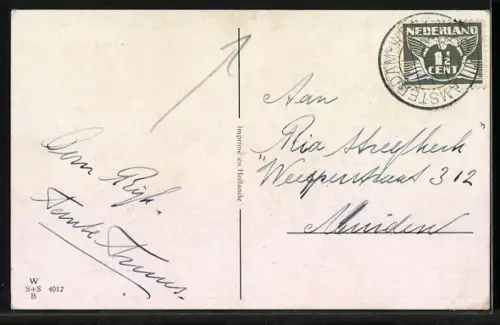 NEDERLAND
1½
CENT
AMSTERDAM
Aan
Ria Streefkerk
Weesperstraat 312
Muiden
Imprimé en Hollande
Tante Truus.
W
S+S 4012
B